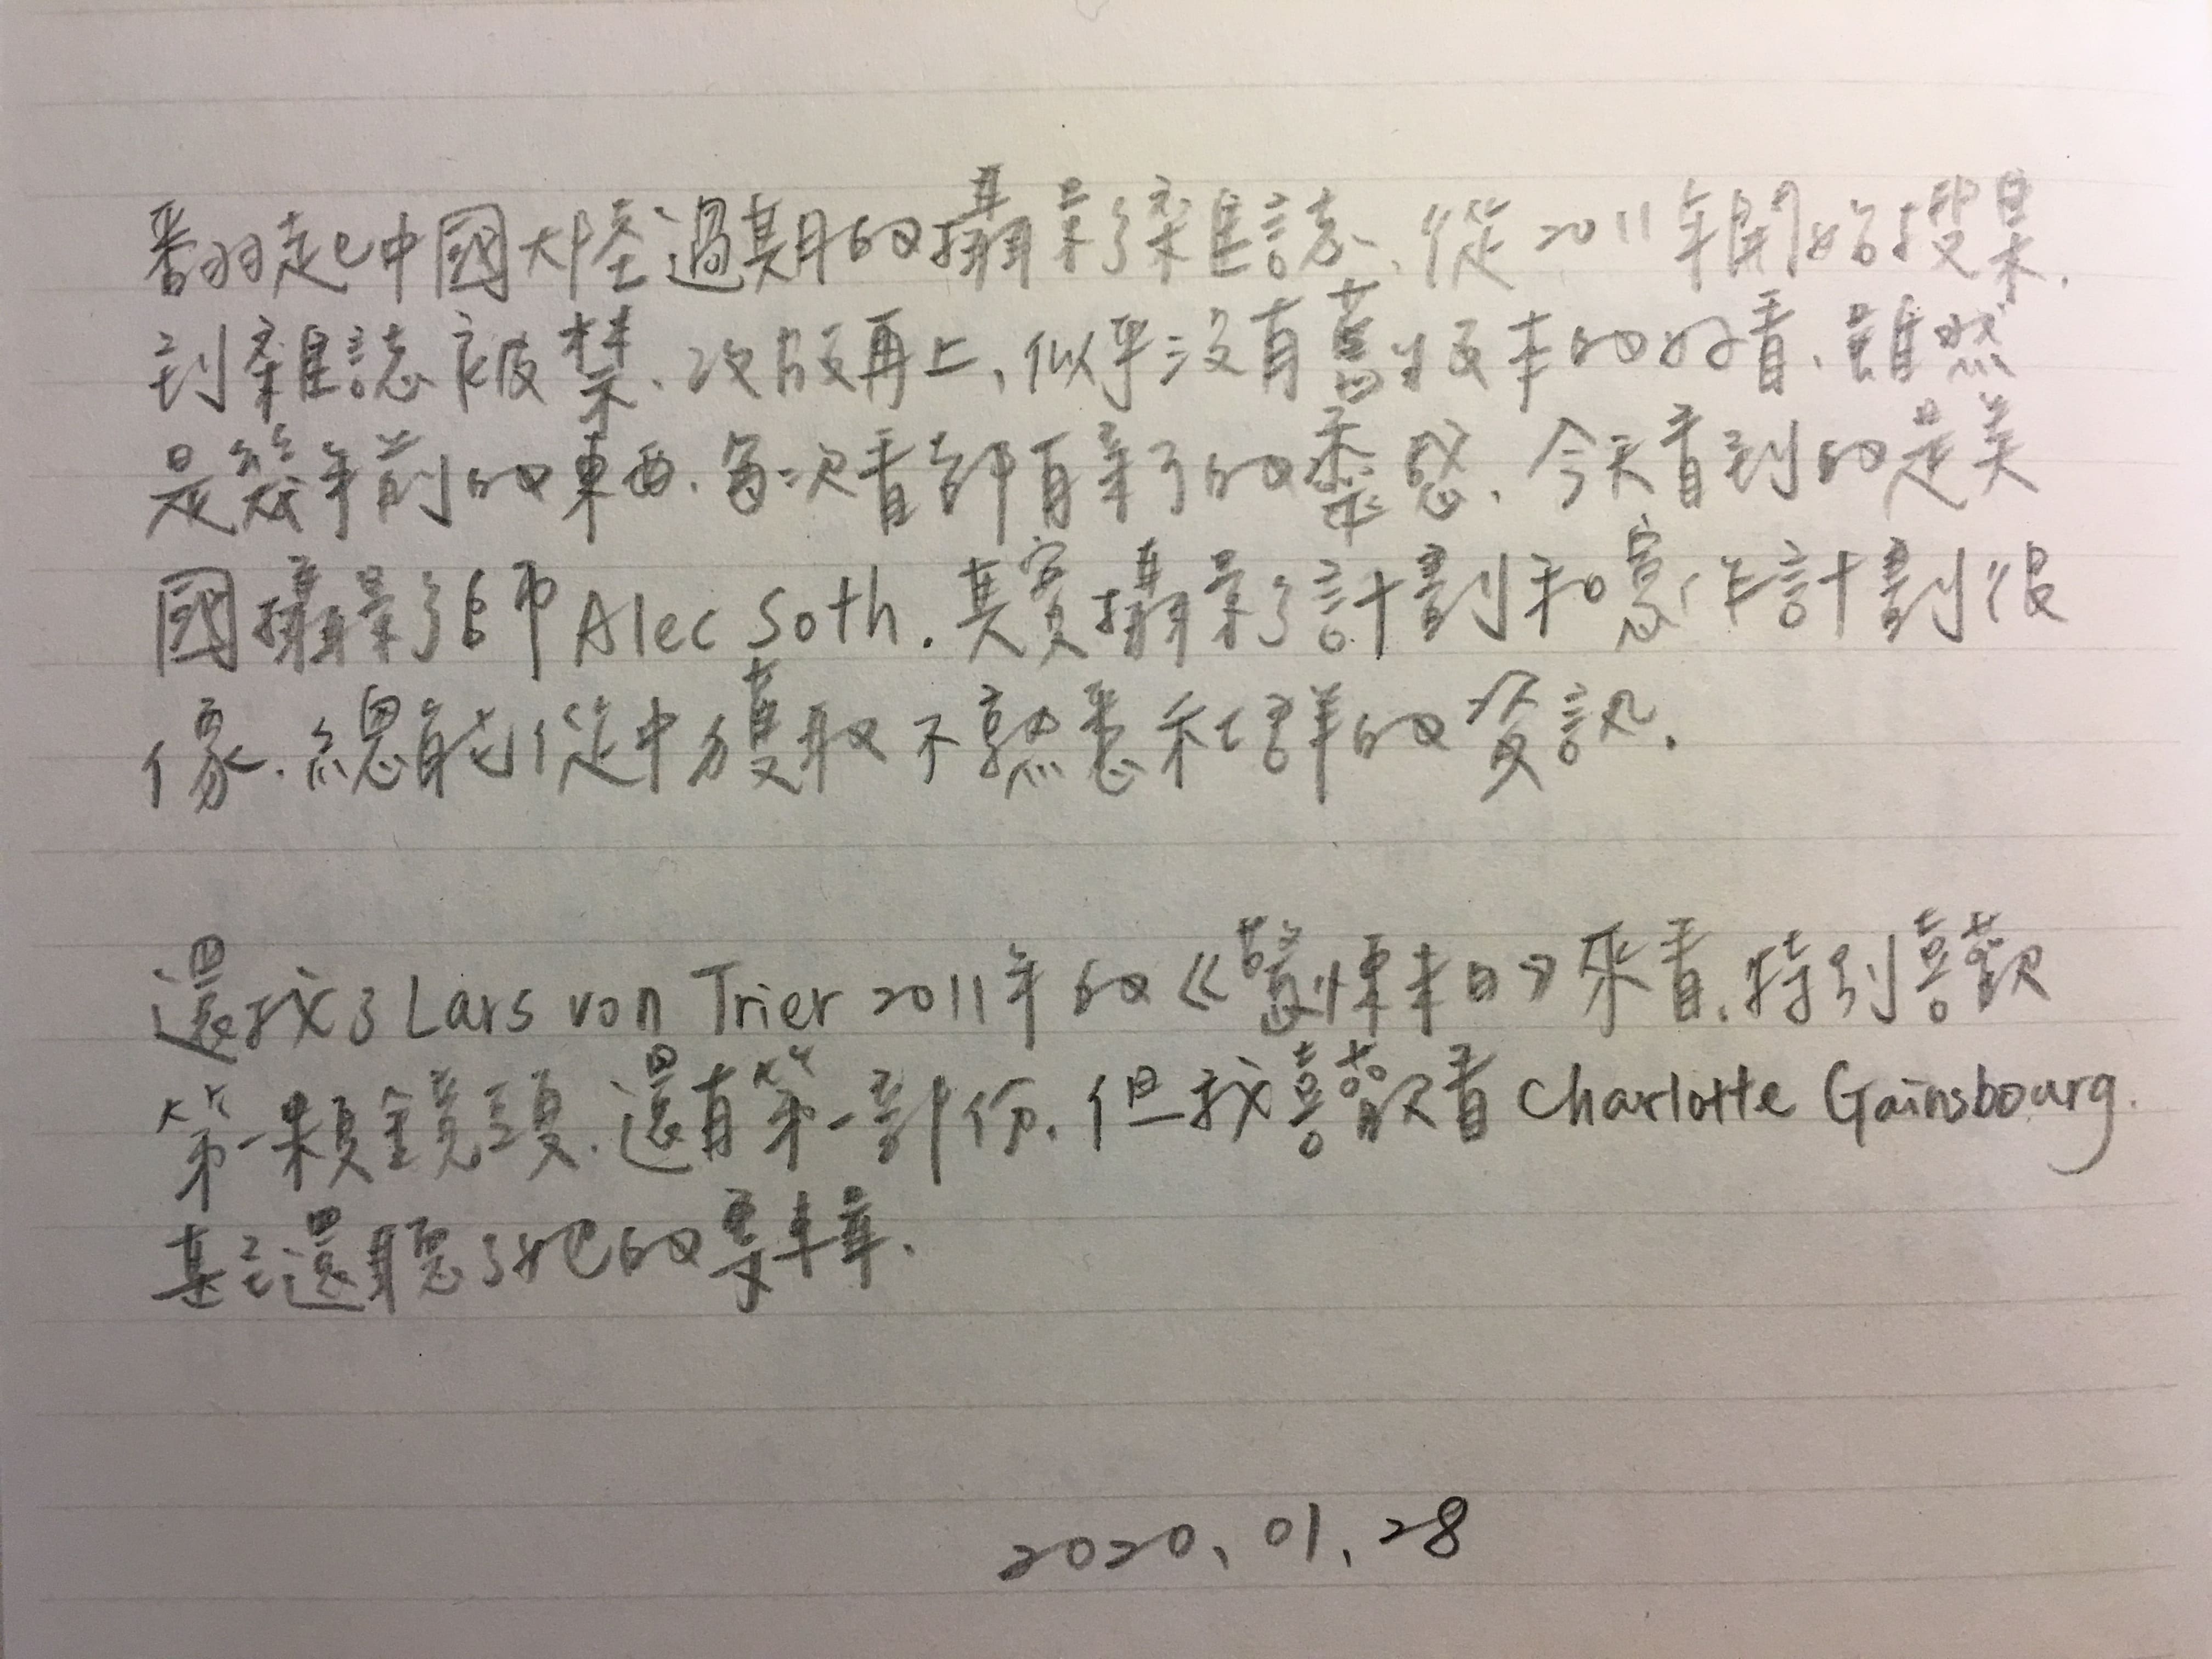 翻起中國大陸過期的攝影雜誌、從2011年開始搜集.
到雜誌被禁、改版再上、似乎沒有舊版本的好看、雖然
是幾年前的東西、每次看都有新的感、今天看到的是美
國攝影師Alec Soth. 其實攝影計劃和寫作計劃很
像、總能從中獲取不熟悉社群的資訊.
還找了Lars von Trier 2011年的《驚悚末日》來看、特別喜歡
第一顆鏡頭、還有第一部份、但我喜歡看Charlotte Gainsbourg.
甚至還聽了她的專輯.
2020、01、28